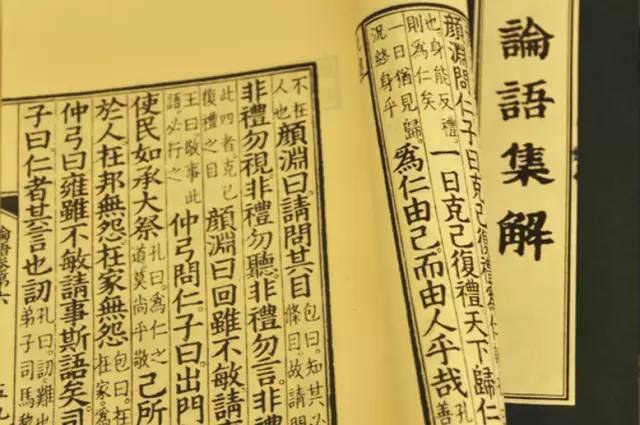 論語集解
顏淵問仁子曰克己復禮為
也身能反禮
則為仁矣
一日克己復禮天下歸仁
一日猶見歸
況終身乎
為仁由己而由人乎哉
孔
善
不在
人也
顏淵曰請問其目
包曰知其必
條目故請
非禮勿視非禮勿聽非禮勿言非禮
此四者克己
復禮之目
顏淵曰回雖不敏請
王曰敬事此
語必行之
仲弓問仁子曰出門
使民如承大祭
孔曰為仁之
道莫尚乎敬
己所
於人在邦無怨在家無怨
包曰在
在家為
仲弓曰雍雖不敏請事斯語矣司
子曰仁者其言也訒
孔曰訒難也
弟子司馬